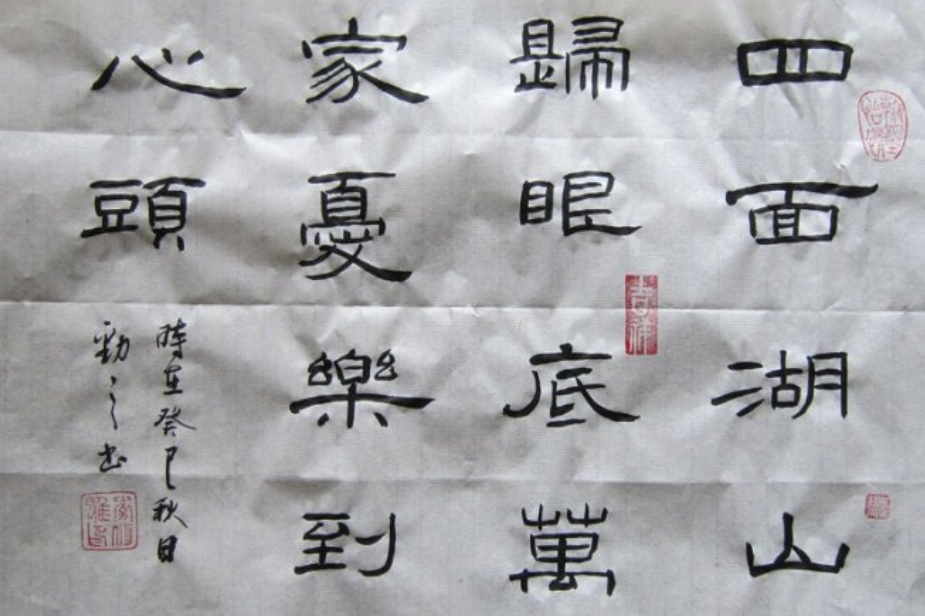 四面湖山
歸眼底萬
家憂樂到
心頭
時在癸巳秋日
勁之書
吉祥